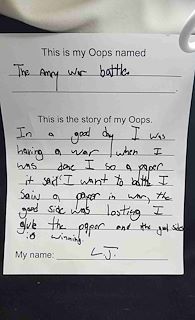 This is my Oops named
The Army war battle
This is the story of my Oops.
In a good day I was
having a war when I
was done I so a paper
it said I want to battle I
saw a paper in war, the
good side was losting I
give the paper and the good side
is winning.
My name: L.J.